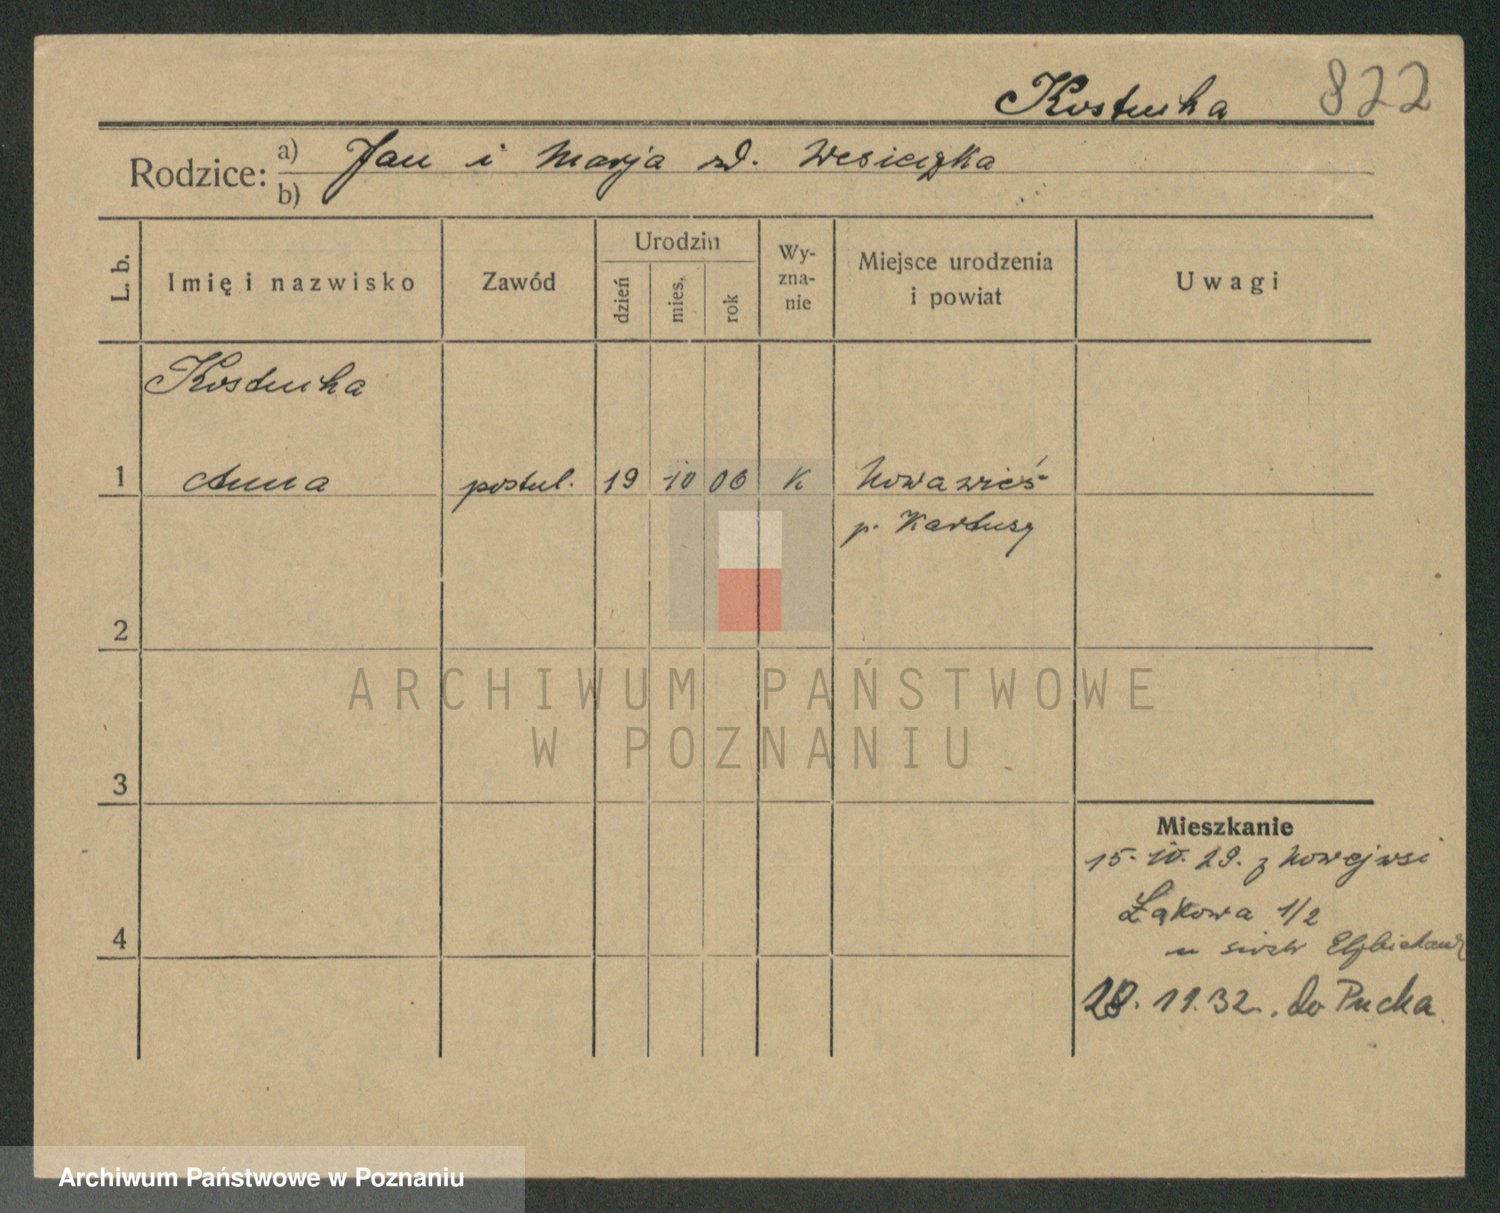 Kostucha 822
Rodzice: a) Jan i Marja zd.
b)
L. b. Imię i nazwisko Zawód Urodzin dzień mies. rok Wy-zna-nie Miejsce urodzenia i powiat Uwagi
Kostucha
1 Anna postul. 19 10 06 k Nowawieś
p. Kartuzy
2
ARCHIWUM PAŃSTWOWE
W POZNANIU
3
Mieszkanie
15. 10. 29. z Nowejwsi
Łąkowa 1/2
4
u sióstr
28. 11. 32. do Pucka
Archiwum Państwowe w Poznaniu